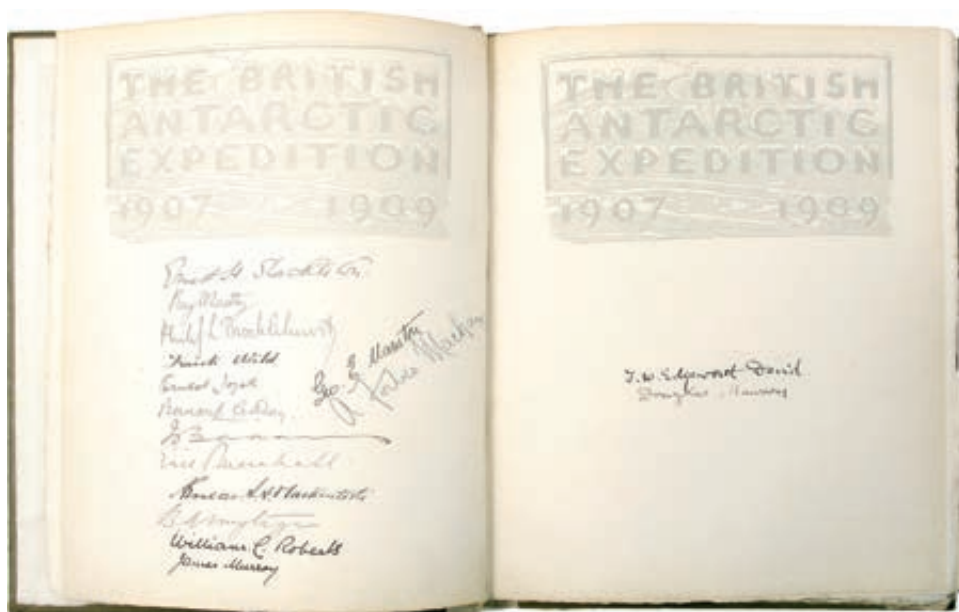 THE BRITISH
ANTARCTIC
EXPEDITION
1907 1909
Ernest H Shackleton
Philip L Brocklehurst
Frank Wild
Ernest Joyce
Bernard C Day
Eric Marshall
Aeneas L.A. Mackintosh
William C Roberts
James Murray
Geo. E Marston
A Forbes Mackay
THE BRITISH
ANTARCTIC
EXPEDITION
1907 1909
T. W. Edgeworth David
Douglas Mawson